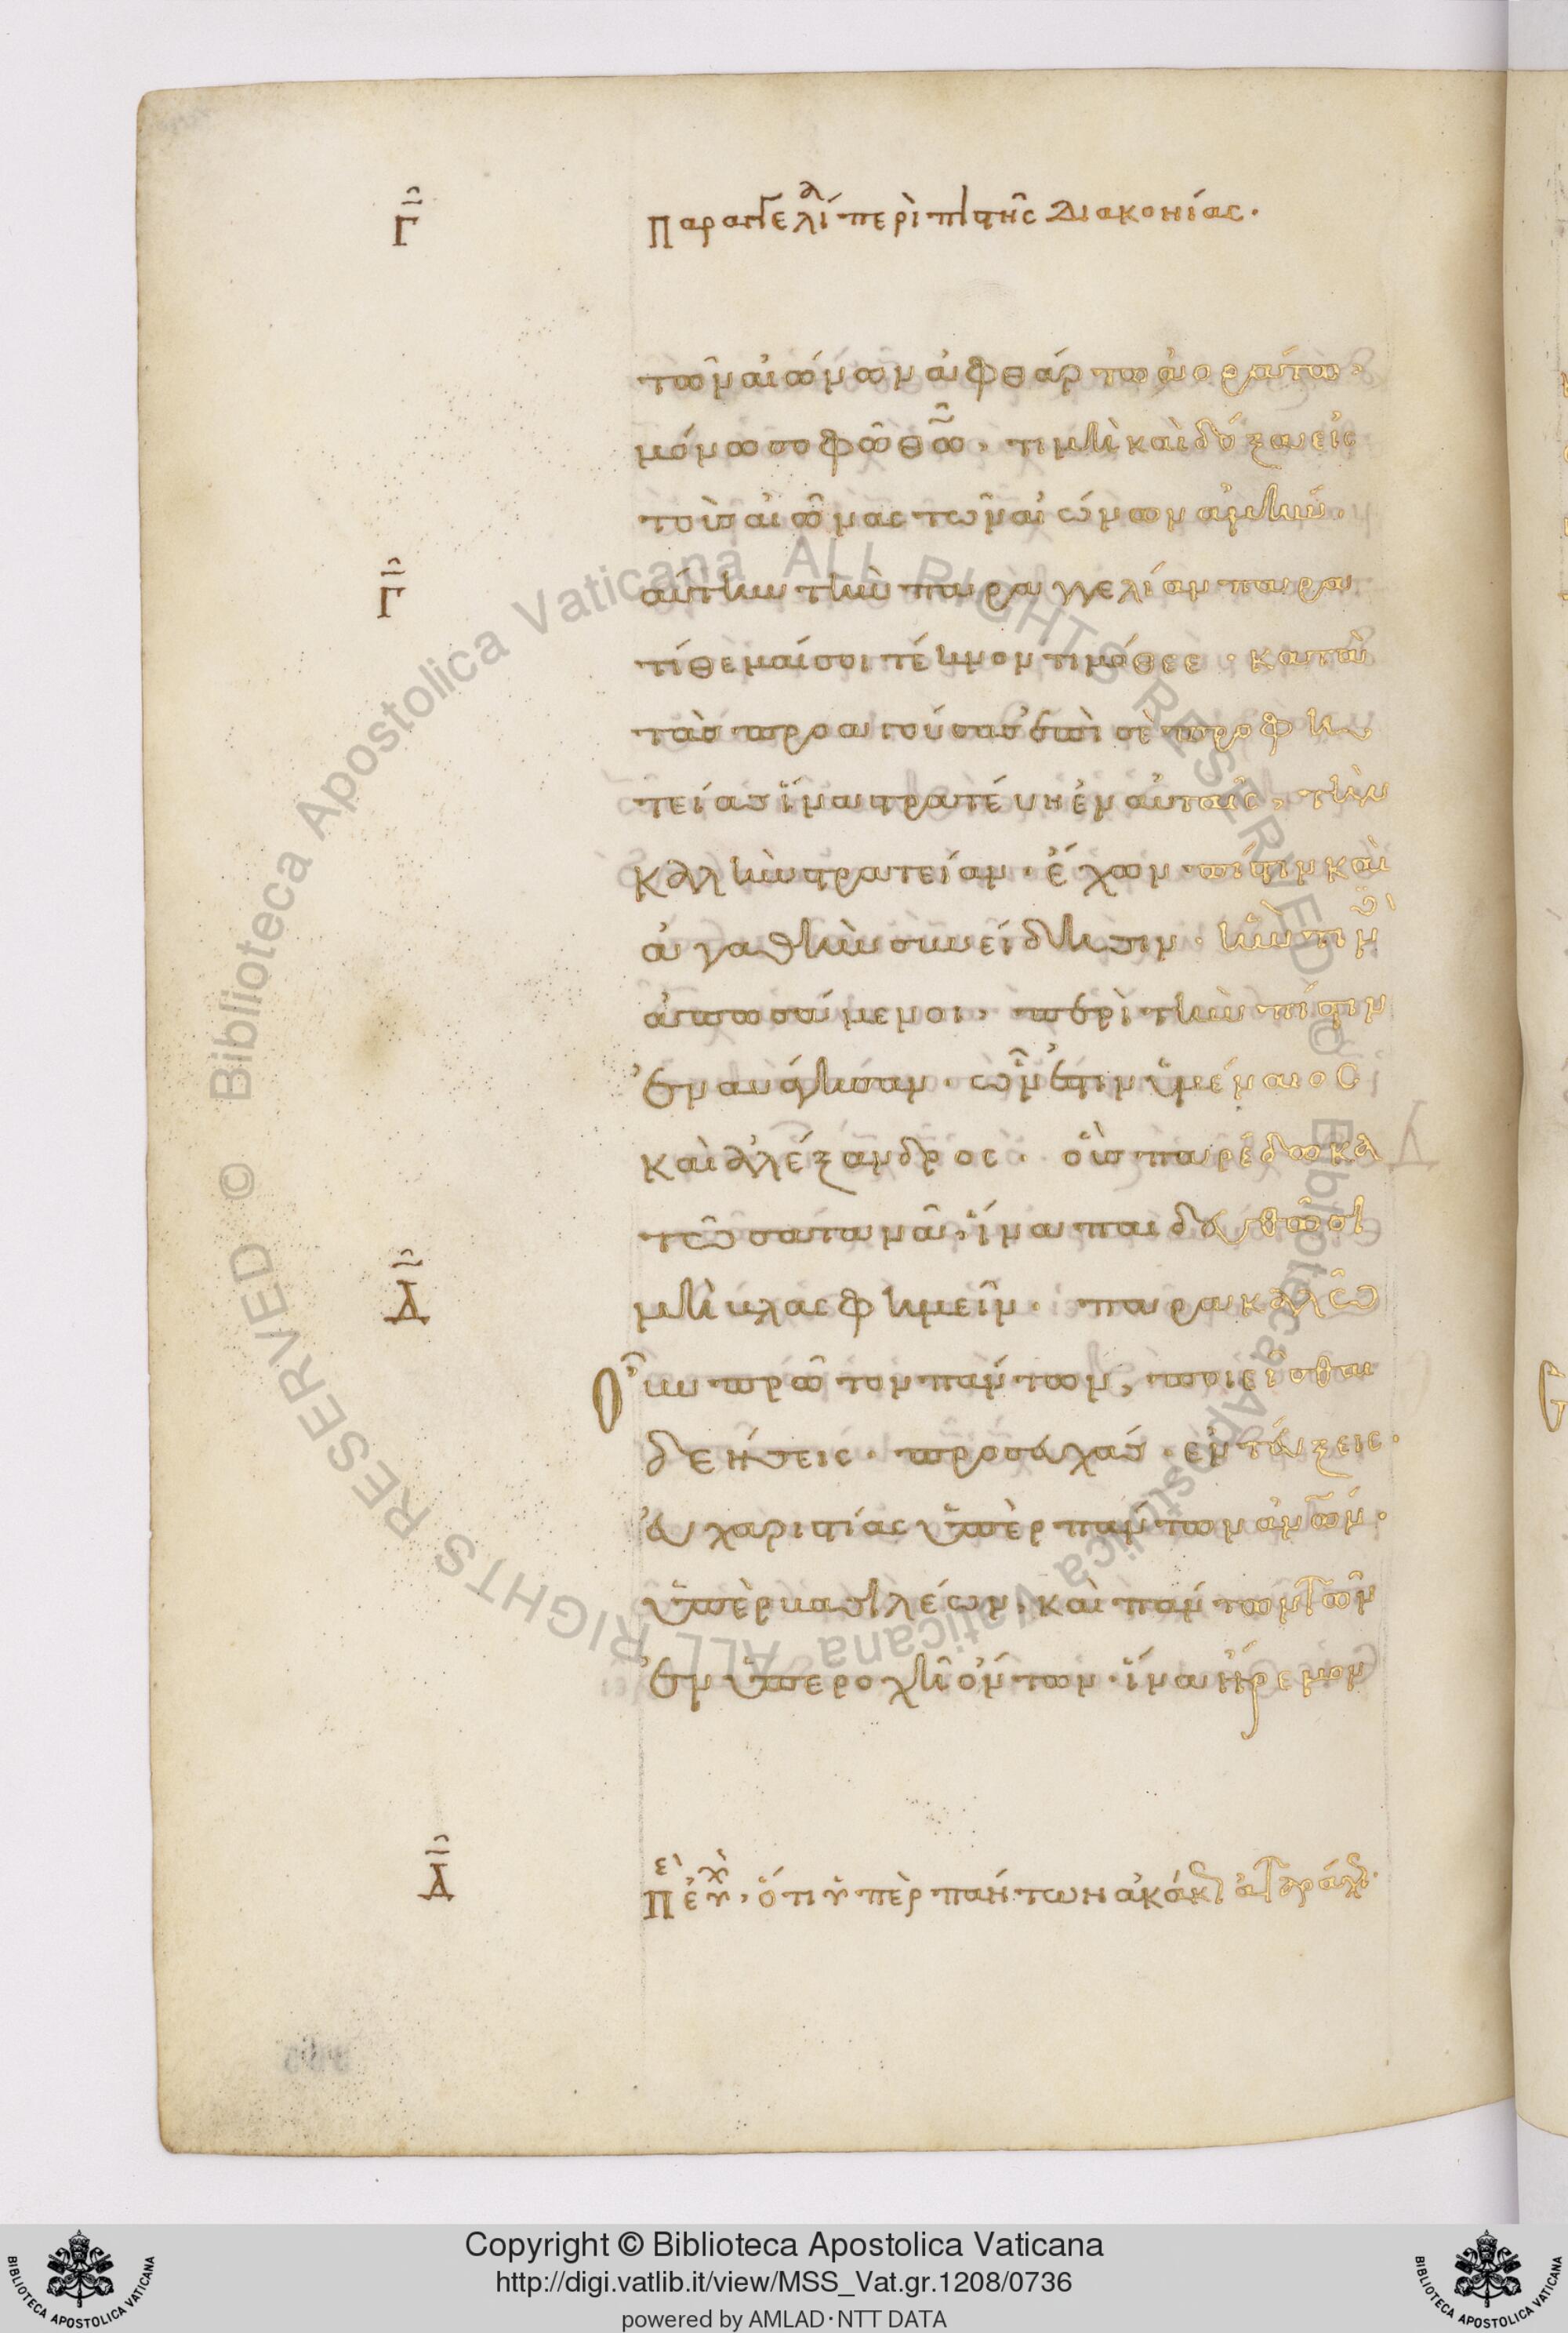 Γ Παραγγελί περὶ πιστῆς διακονίας.
τῶν αἰώνων ἀφθάρτω ἀοράτω.
μόνω σοφῶ θῶ, τιμὴ καὶ δόξα εἰς
τοὺς αἰῶνας τῶν αἰώνων ἀμήν.
Γ αύτην τὴν παραγγελίαν παρα
τίθεμαί σοι τέκνον τιμόθεε. κατὰ
τὰς προαγούσας ἐπὶ σὲ προφη
τείας ἵνα στρατεύη ἐν αὐταῖς, τὴν
καλὴν στρατείαν. ἔχων πίστιν καὶ
ἀγαθὴν συνείδησιν. ἥν τιν
ἀπωσάμενοι. περὶ τὴν πίστιν
ἐναυάγησαν. ὧν ἐστιν ὑμέναιος
καὶ ἀλέξανδρος. οὓς παρέδωκα
τῶ σατανᾶ. ἵνα παιδευθῶσι
Δ μὴ βλασφημεῖν. παρακαλῶ
Οὖν πρῶτον πάντων, ποιεῖσθαι
δεήσεις. προσευχάς. ἐντεύξεις.
εὐχαριστίας ὑπὲρ πάντων ἀνῶν.
ὑπὲρ βασιλέων. καὶ πάντων τῶν
ἐν ὑπεροχῆ ὄντων. ἵνα ἤρεμον
Δ Π εὐχ, ὅτι ὑπὲρ πάντων
Copyright © Biblioteca Apostolica Vaticana
http://digi.vatlib.it/view/MSS_Vat.gr.1208/0736
powered by AMLAD·NTT DATA
BIBLIOTECA APOSTOLICA VATICANA
BIBLIOTECA APOSTOLICA VATICANA
© Biblioteca Apostolica Vaticana ALL RIGHTS RESERVED
© Biblioteca Apostolica Vaticana ALL RIGHTS RESERVED